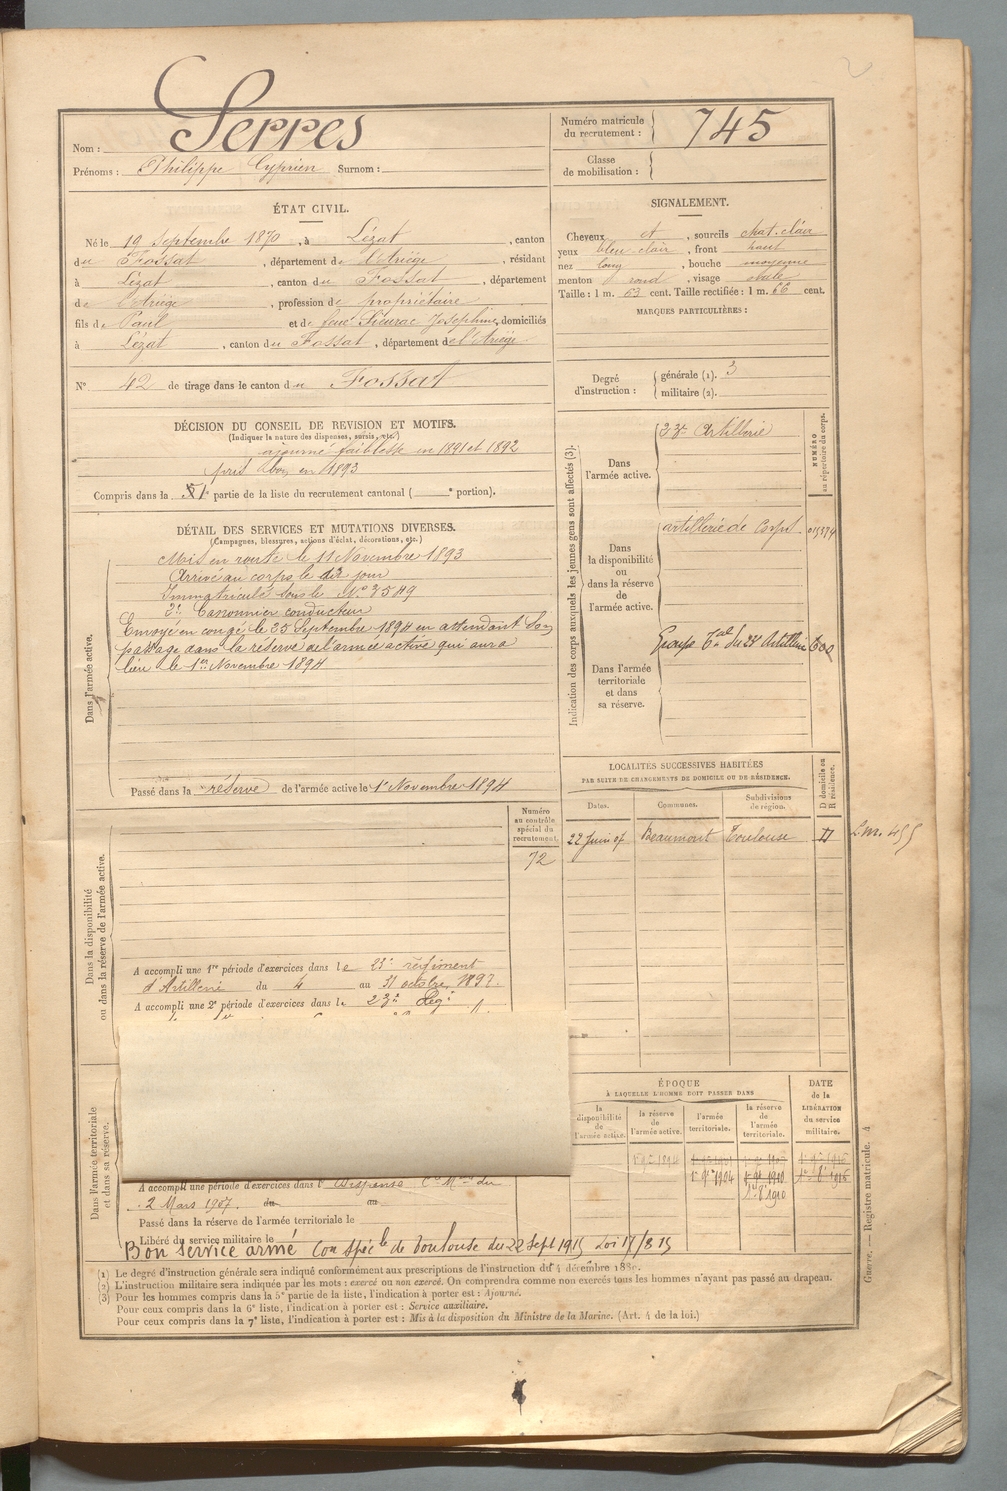 Nom : Serres
Prénoms : Philippe Cyprien Surnom :
Numéro matricule du recrutement : 745
Classe de mobilisation :
ÉTAT CIVIL.
Né le 19 Septembre 1870, à Lézat, canton
du Fossat, département de l'Ariège, résidant
à Lézat, canton du Fossat, département
de l'Ariège, profession de propriétaire
fils de Paul et de feue Sieurac Joséphine, domiciliés
à Lézat, canton du Fossat, département de l'Ariège
N° 42 de tirage dans le canton du Fossat
SIGNALEMENT.
Cheveux et, sourcils chat. clair
yeux bleu clair, front haut
nez long, bouche moyenne
menton rond, visage ovale
Taille : 1 m. 63 cent. Taille rectifiée : 1 m. 66 cent.
MARQUES PARTICULIÈRES :
Degré d'instruction : générale (1). 3
militaire (2).
DÉCISION DU CONSEIL DE REVISION ET MOTIFS.
(Indiquer la nature des dispenses, sursis, etc.)
ajourné faiblesse en 1891 et 1892
pris bon en 1893
Compris dans la partie de la liste du recrutement cantonal ( e portion).
DÉTAIL DES SERVICES ET MUTATIONS DIVERSES.
(Campagnes, blessures, actions d'éclat, décorations, etc.)
Dans l'armée active.
Mis en route le 11 Novembre 1893
Arrivé au corps le dit jour
Immatriculé sous le N° 3549
2e Canonnier conducteur
Envoyé en congé le 25 Septembre 1894 en attendant son
passage dans la réserve de l'armée active qui aura
lieu le 1er Novembre 1894
Passé dans la réserve de l'armée active le 1er Novembre 1894
Indication des corps auxquels les jeunes gens sont affectés (3).
NUMÉRO au répertoire du corps.
Dans l'armée active.
23e Artillerie
Dans la disponibilité ou dans la réserve de l'armée active.
artillerie de Corps
Dans l'armée territoriale et dans sa réserve.
Groupe Artillerie
LOCALITÉS SUCCESSIVES HABITÉES
PAR SUITE DE CHANGEMENTS DE DOMICILE OU DE RÉSIDENCE.
Dates. Communes. Subdivisions de région. D domicile ou R résidence.
22 Juin 07 Beaumont Toulouse D
Dans la disponibilité ou dans la réserve de l'armée active.
Numéro au contrôle spécial du recrutement.
72
A accompli une 1re période d'exercices dans le 23e régiment
d'Artillerie du 4 au 31 octobre 1897.
A accompli une 2e période d'exercices dans le 23e Régt
Dans l'armée territoriale et dans sa réserve.
A accompli une période d'exercices dans l Dispensé du
2 Mars 1907. du au
Passé dans la réserve de l'armée territoriale le
Libéré du service militaire le
Bon service armé Con Spéc le de Toulouse du 22 Sept 1915 Loi 17/8 15
ÉPOQUE
À LAQUELLE L'HOMME DOIT PASSER DANS
la disponibilité de l'armée active.
la réserve de l'armée active.
l'armée territoriale.
la réserve de l'armée territoriale.
DATE de la LIBÉRATION du service militaire.
(1) Le degré d'instruction générale sera indiqué conformément aux prescriptions de l'instruction du 4 décembre 1889.
(2) L'instruction militaire sera indiquée par les mots : exercé ou non exercé. On comprendra comme non exercés tous les hommes n'ayant pas passé au drapeau.
(3) Pour les hommes compris dans la 5e partie de la liste, l'indication à porter est : Ajourné.
Pour ceux compris dans la 6e liste, l'indication à porter est : Service auxiliaire.
Pour ceux compris dans la 7e liste, l'indication à porter est : Mis à la disposition du Ministre de la Marine. (Art. 4 de la loi.)
Guerre. — Registre matricule. 4